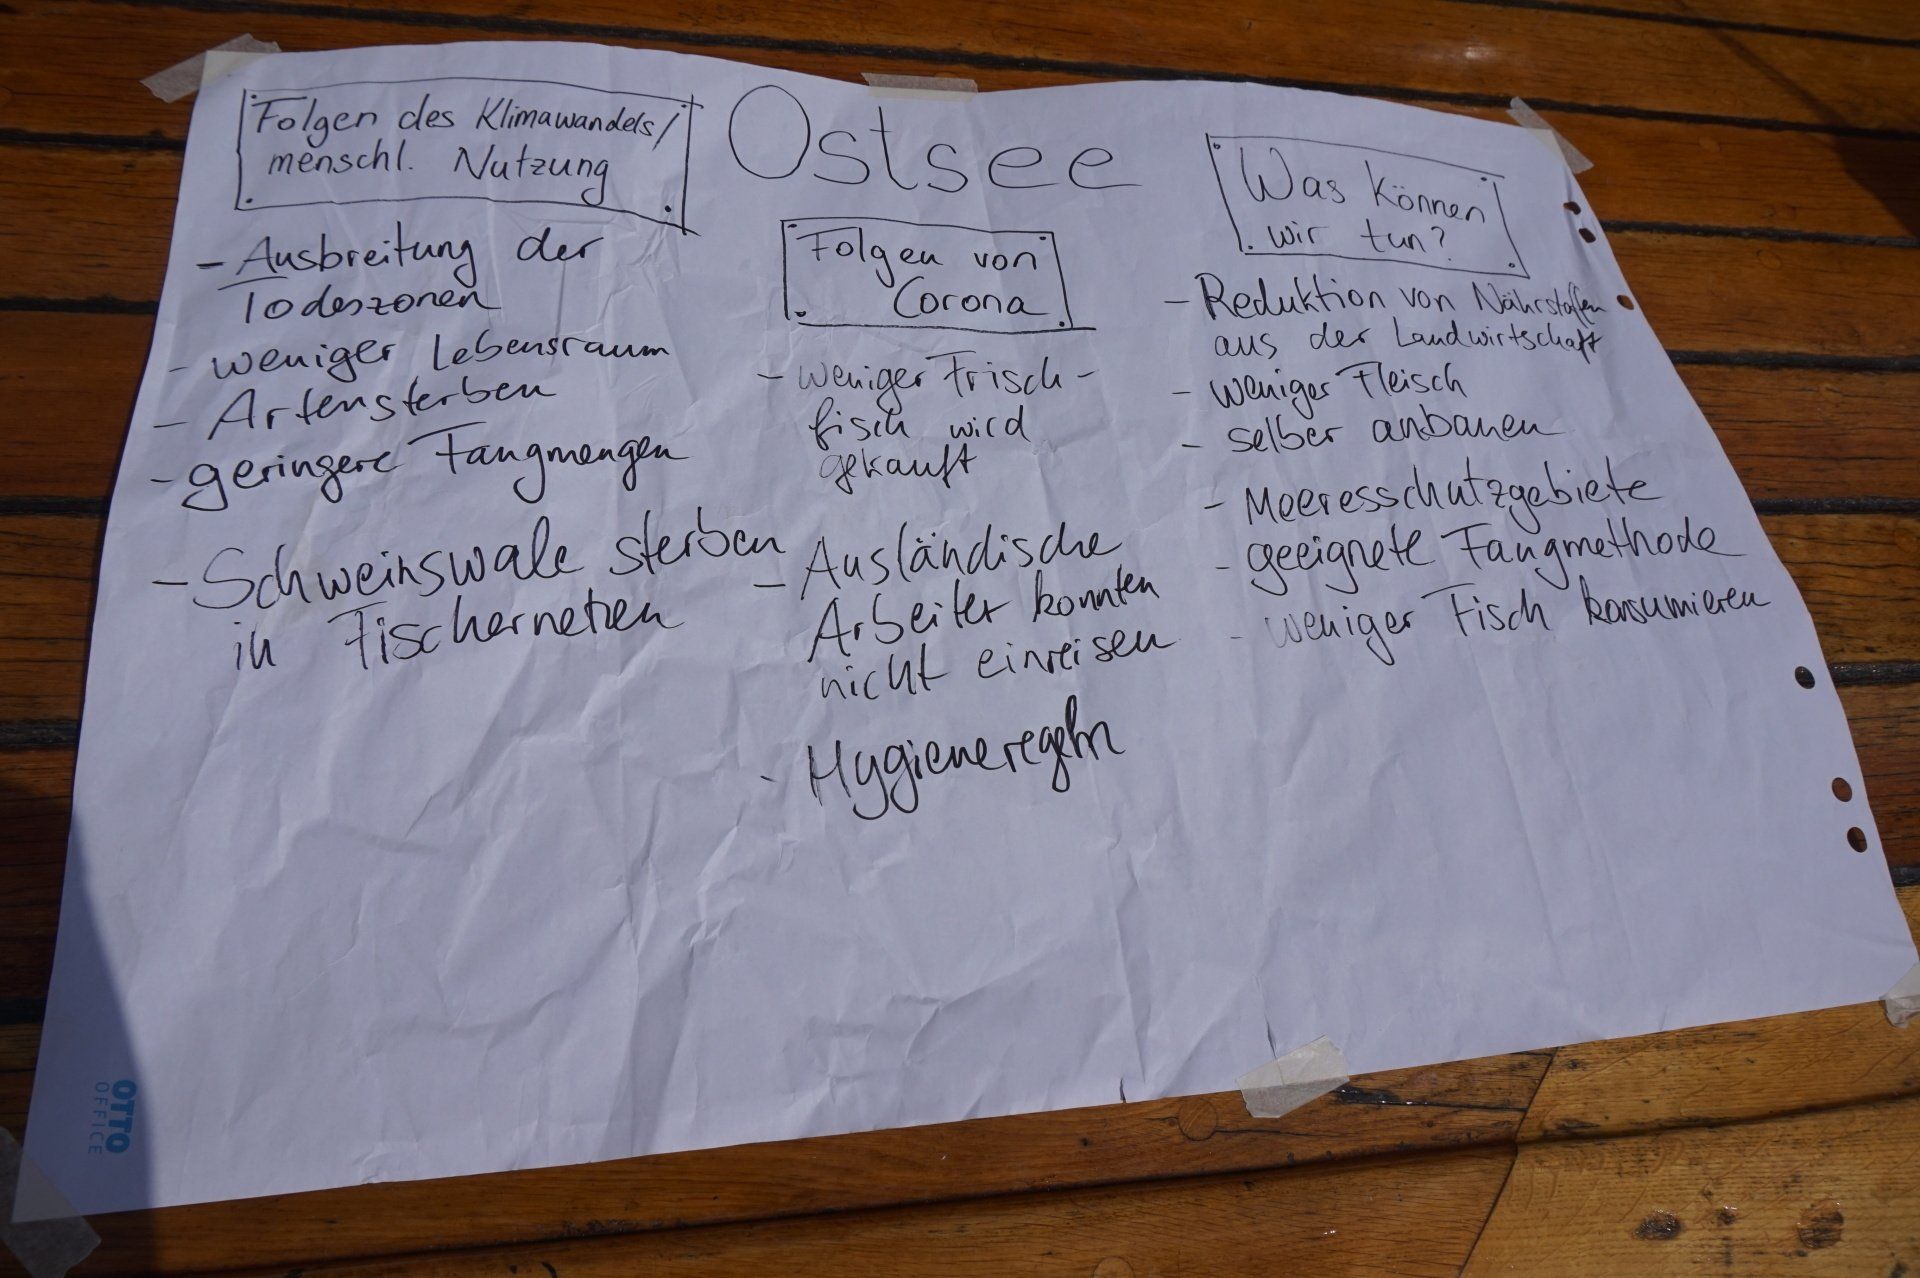 Ostsee
Folgen des Klimawandels/
menschl. Nutzung
- Ausbreitung der
Todeszonen
- weniger Lebensraum
- Artensterben
- geringere Fangmengen
- Schweinswale sterben
in Fischernetzen
Folgen von
Corona
- weniger Frisch-
fisch wird
gekauft
- Ausländische
Arbeiter konnten
nicht einreisen
- Hygieneregeln
Was können
wir tun?
- Reduktion von Nährstoffen
aus der Landwirtschaft
- weniger Fleisch
- selber anbauen
- Meeresschutzgebiete
- geeignete Fangmethode
- weniger Fisch konsumieren
OTTO
OFFICE